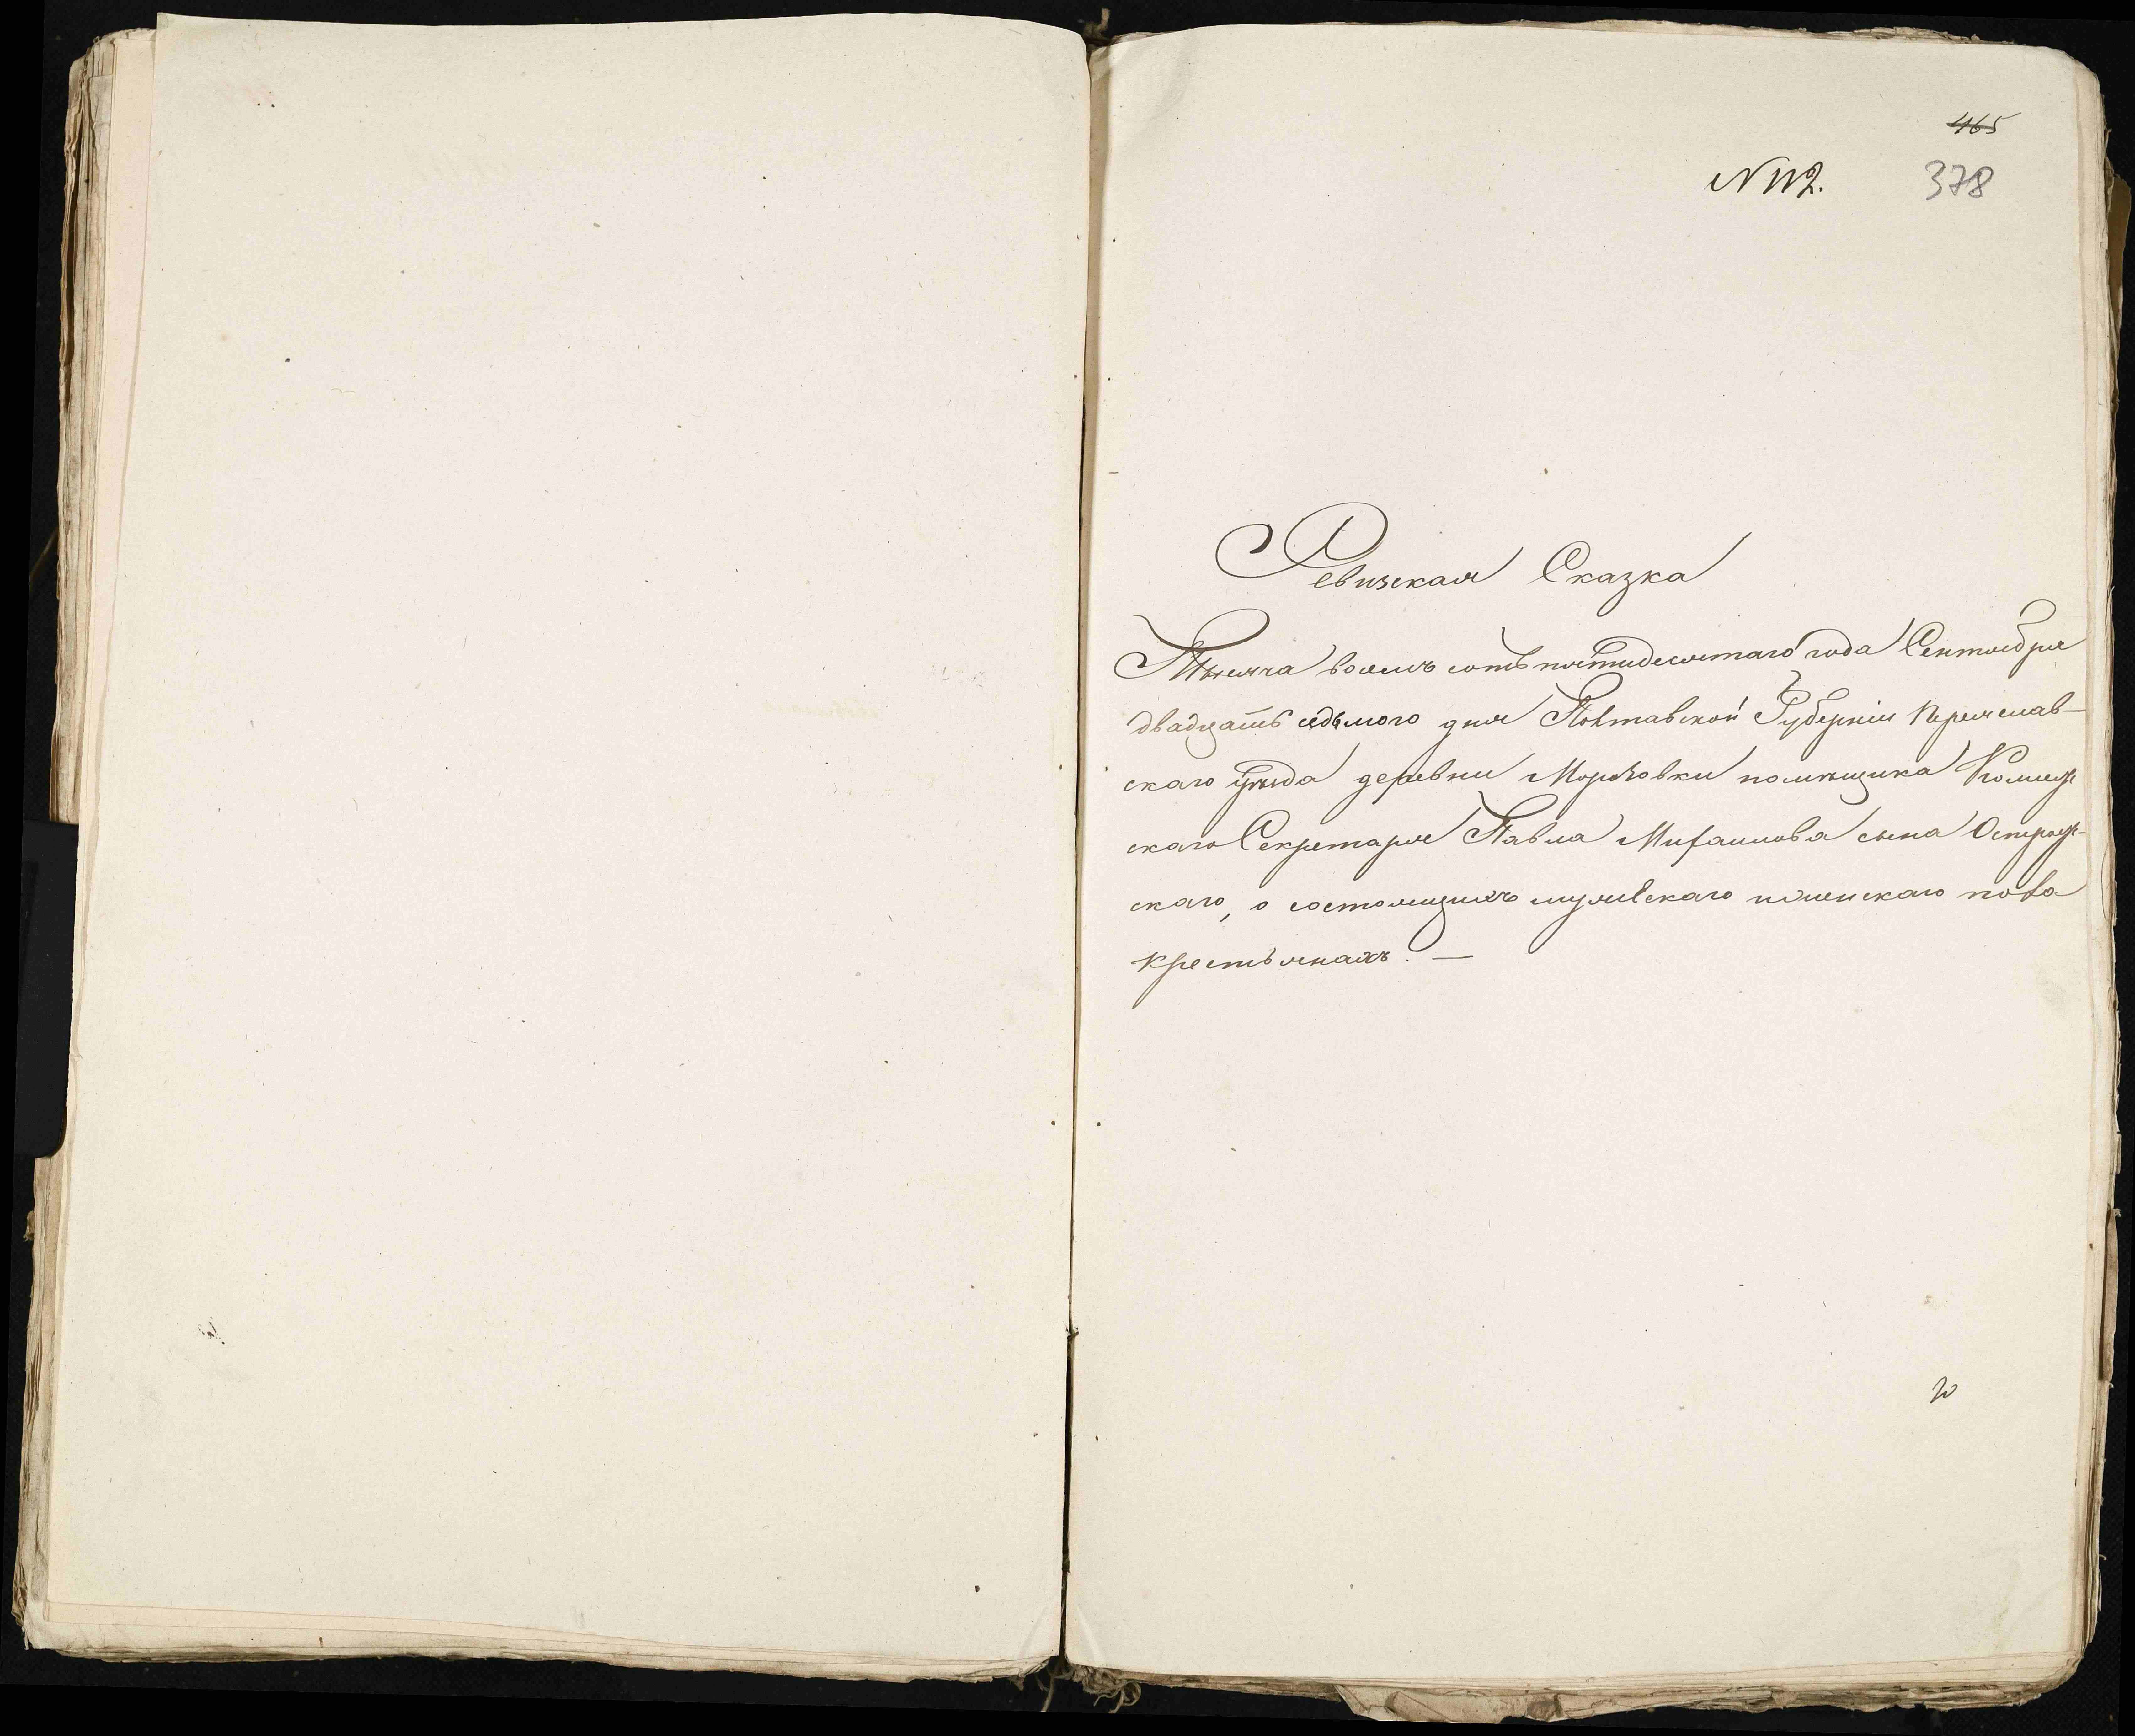 465
N 112. 378
Ревизская Сказка
Тысяча восемь сотъ пятидесятаго года Сентября
двадцать седьмого дня Полтавской Губерніи Переяслав-
скаго уѣзда деревни помѣщика Коллеж-
скаго Секретаря Павла Михаилова сына
скаго, о состоящихъ мужескаго и женскаго пола
крестьянахъ. —